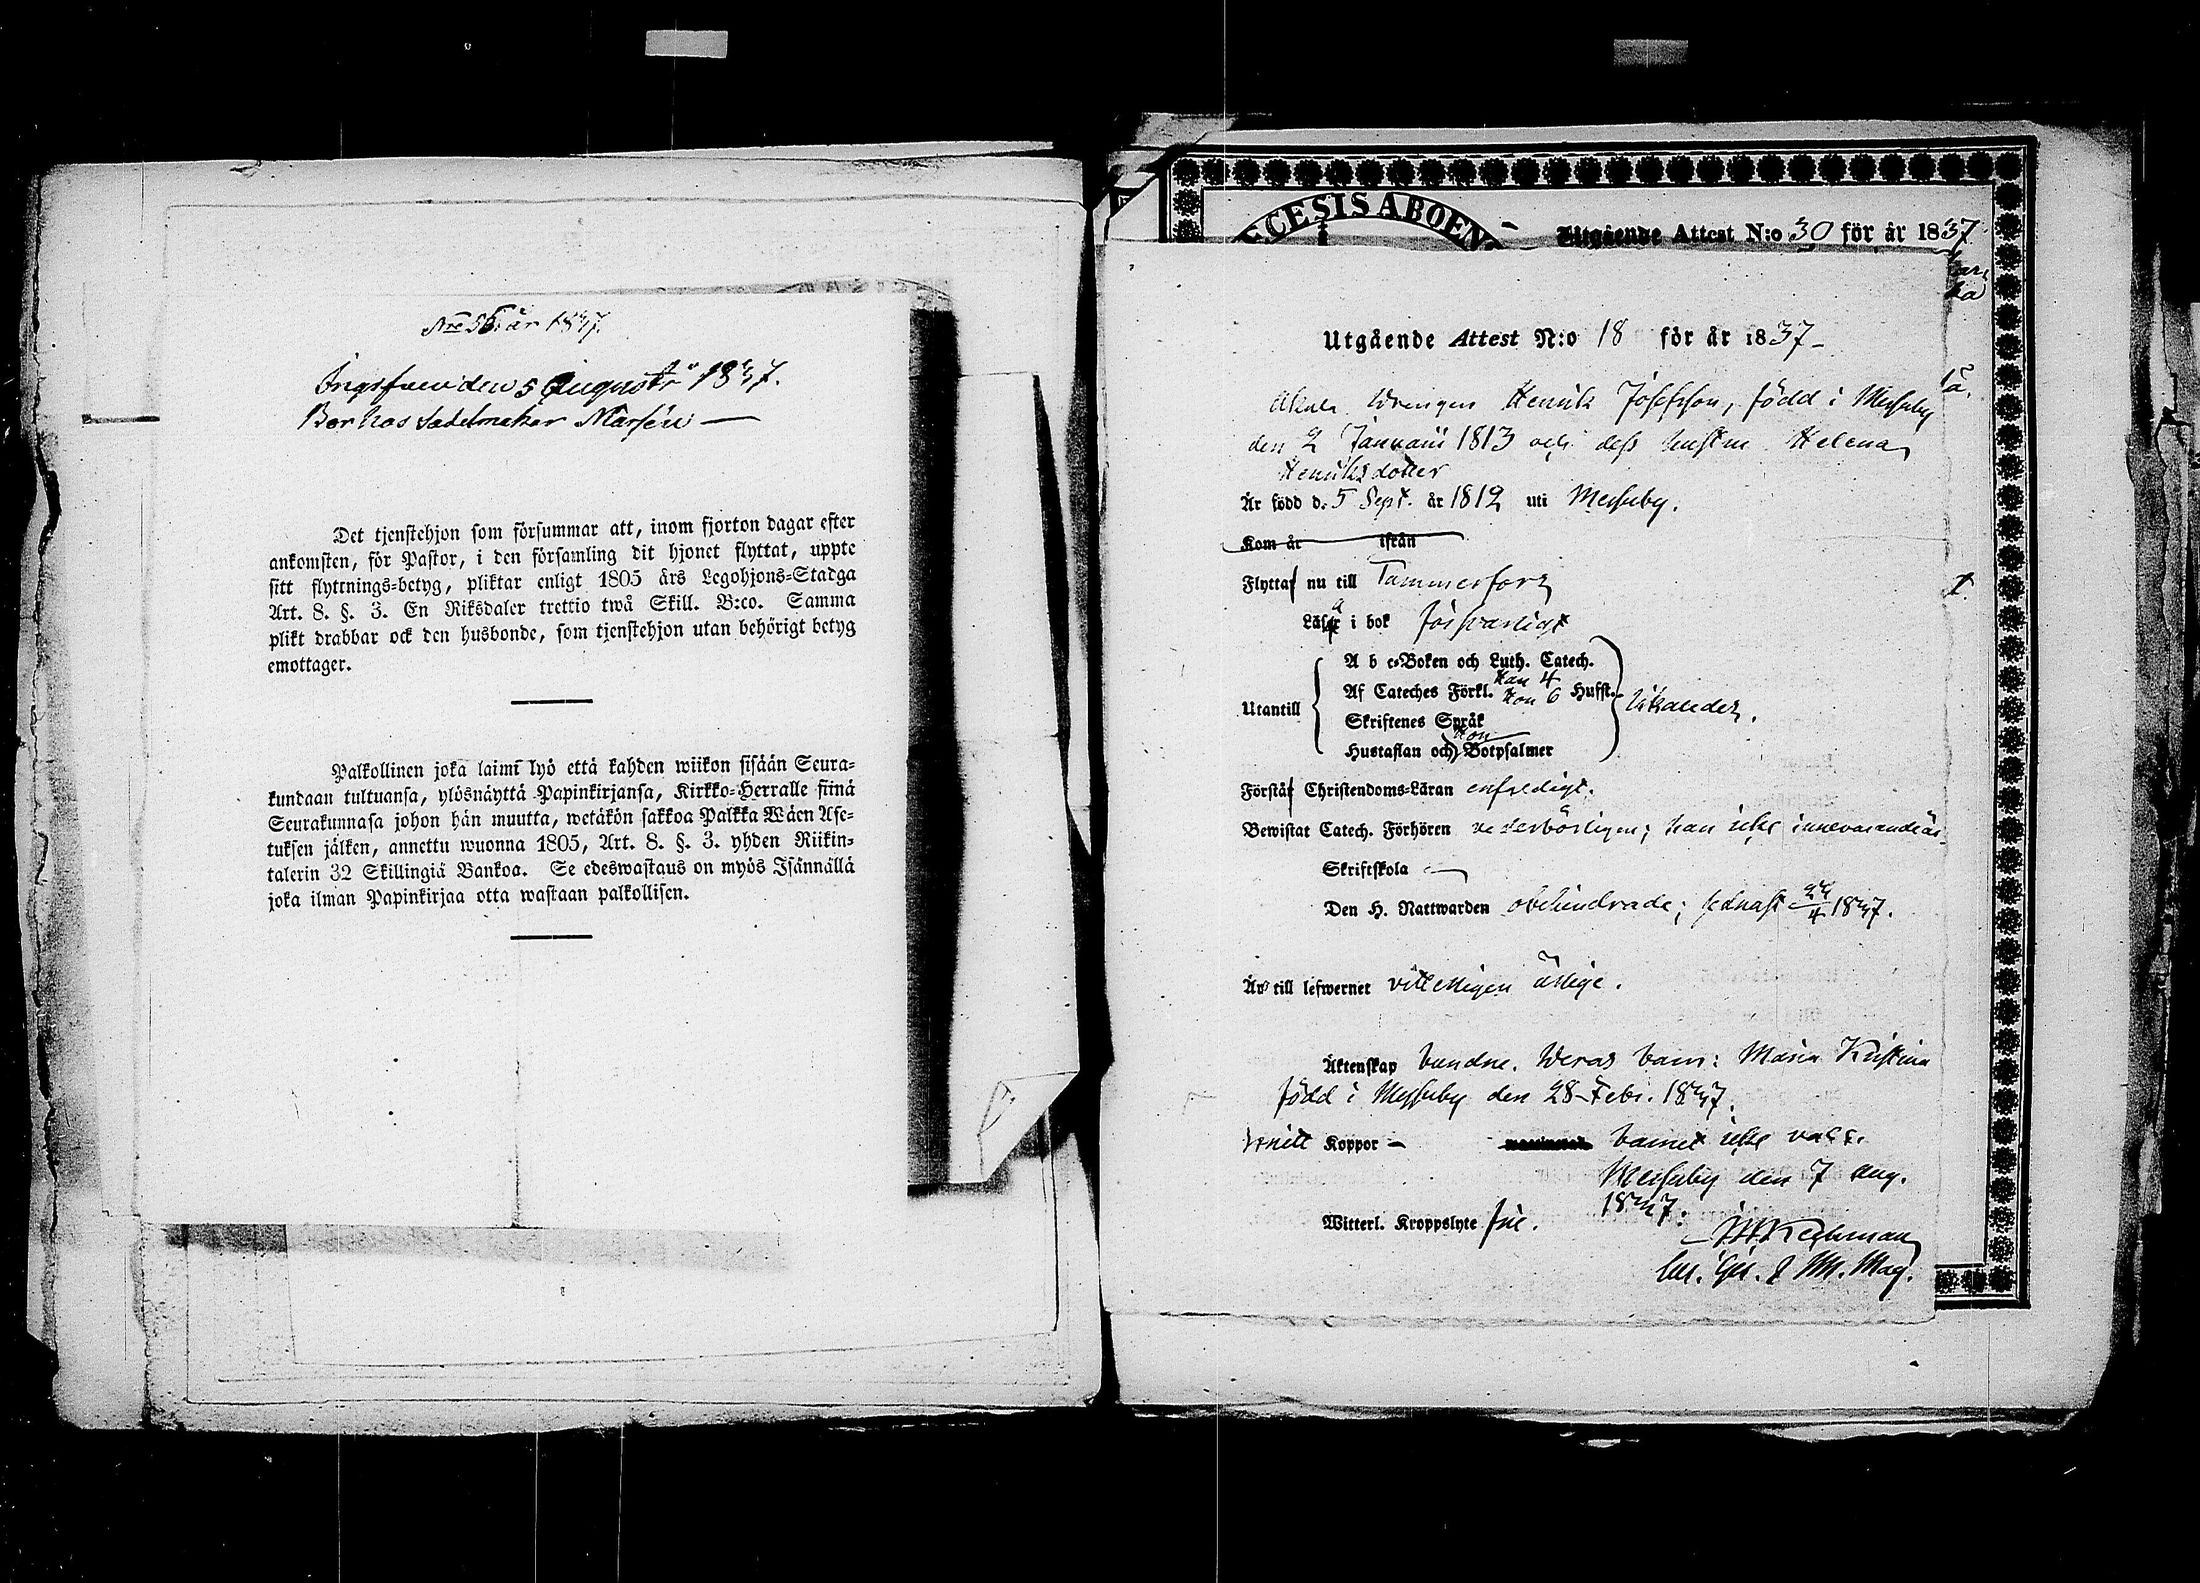 Nro 56 år 1837.
Ingifven den 5 Augusti 1837.
Bor hos Sadelmaker
Det tjenstehjon som försummar att, inom fjorton dagar efter
ankomsten, för Pastor, i den församling dit hjonet flyttat, uppte
sitt flyttnings-betyg, pliktar enligt 1805 års Legohjons-Stadga
Art. 8. §. 3. En Riksdaler trettio twå Skill. B:co. Samma
plikt drabbar ock den husbonde, som tjenstehjon utan behörigt betyg
emottager.
Palkollinen joka laimi lyö että kahden wiikon sisään Seura-
kundaan tultuansa, ylösnäyttä Papinkirjansa, Kirkko-Herralle siinä
Seurakunnasa johon hän muutta, wetäkön sakkoa Palkka Wäen Ase-
tuksen jälken, annettu wuonna 1805, Art. 8. §. 3. yhden Riikin-
talerin 32 Skillingiä Bankoa. Se edeswastaus on myös Isännällä
joka ilman Papinkirjaa otta wastaan palkollisen.
ECESIS ABOEN
Utgående Attest N:o 30 för år 1837
Utgående Attest N:o 18 för år 1837
Drengen Henrik Josefsson, född i Messuby
den 2 Januarii 1813 och dess hustru Helena
Henriksdotter
Är född d. 5 Sept. år 1812 uti Messuby.
Kom år ifrån
Flytta nu till Tammerfors
Läsa i bok försvarligt
A b c-Boken och Luth. Catech.
Af Cateches Förkl. Han 4 Hon 6 Hufst.
Utantill
Skriftenes Språk
Hon
Hustaflan och Botpsalmer
Förstå Christendoms-Läran enfaldigt.
Bewistat Catech. Förhören vederbörligen; han icke innevarande år.
Skriftskola
Den H. Nattwarden obehindrade; sednast 23/4 1837.
Äro till lefwernet vitterligen ärlige.
Äktenskap bundne. Deras barn: Maria Kristina
född i Messuby den 28 Febr. 1837.
Koppor barnet icke vacc.
Messuby den 7 Aug.
1837.
Witterl. Kroppslyte frie.